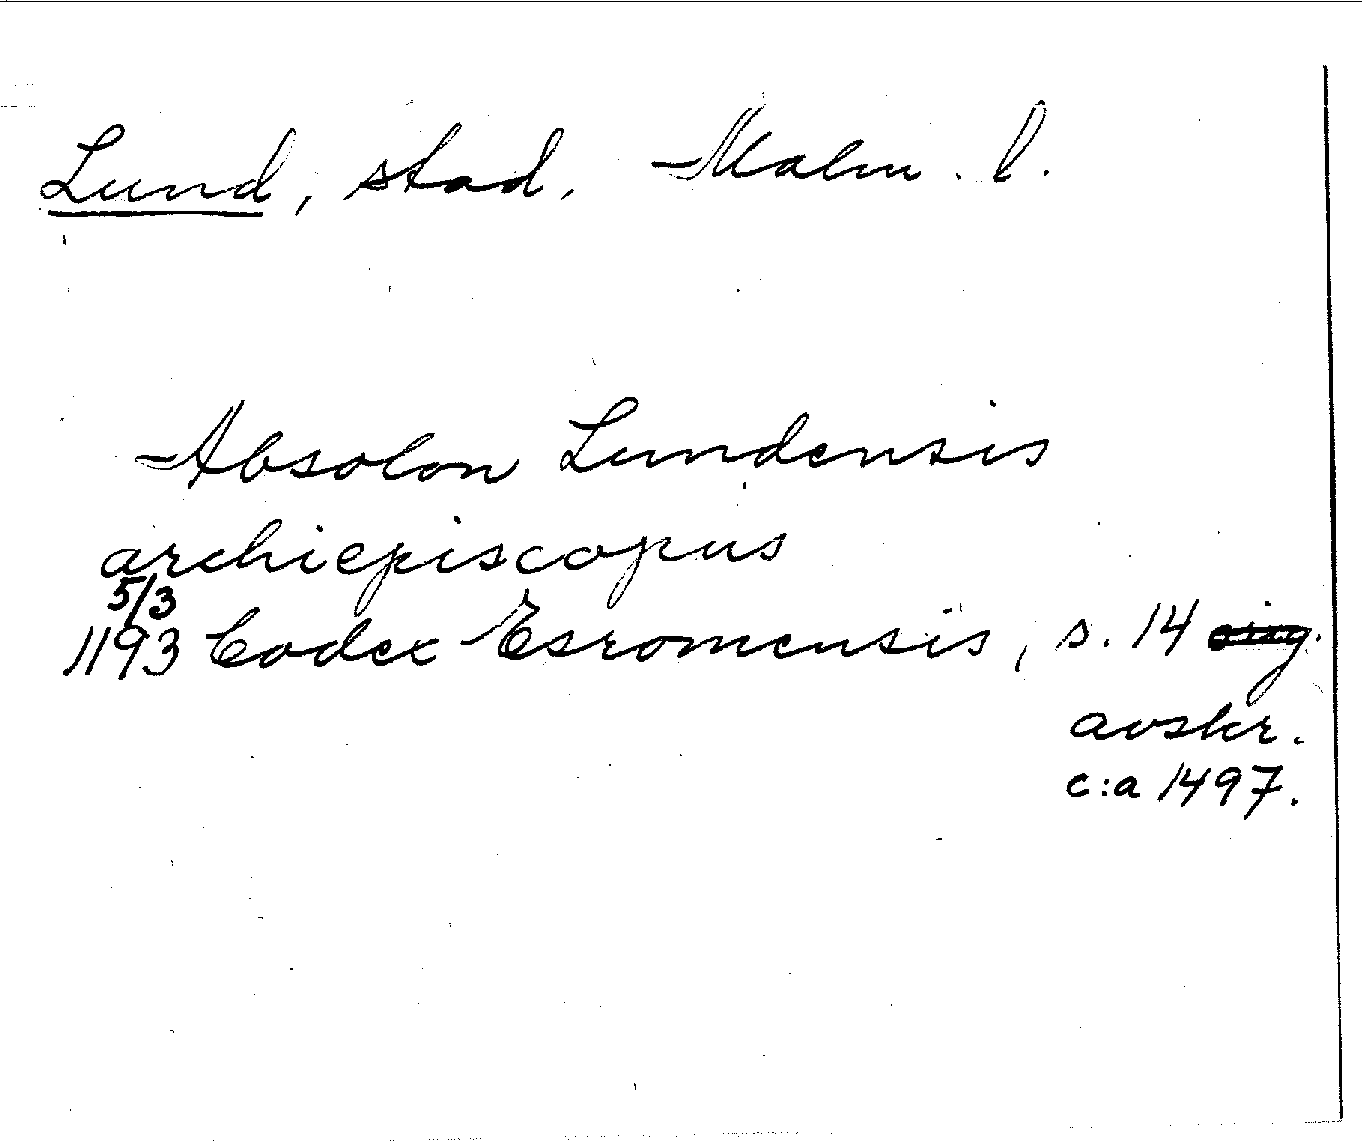 Lund, stad. Malm. l.
Absolon Lundensis
archiepiscopus
5/3
1193 Codex Esromensis, s. 14
avskr.
c:a 1497.